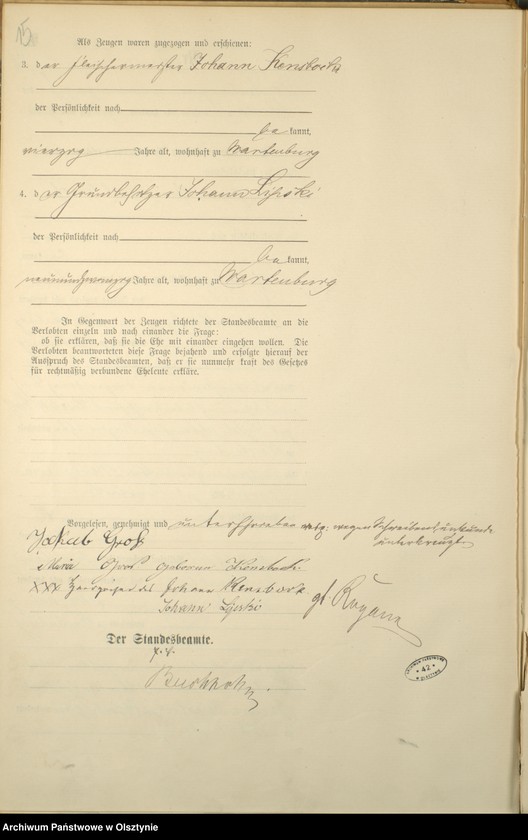 15
Als Zeugen waren zugezogen und erschienen:
3. der Fleischermeister Johann Kensbock
der Persönlichkeit nach
be kannt,
vierzig Jahre alt, wohnhaft zu Wartenburg
4. der Grundbesitzer Johann Lipski
der Persönlichkeit nach
be kannt,
neunundzwanzig Jahre alt, wohnhaft zu Wartenburg
In Gegenwart der Zeugen richtete der Standesbeamte an die
Verlobten einzeln und nach einander die Frage:
ob sie erklären, daß sie die Ehe mit einander eingehen wollen. Die
Verlobten beantworteten diese Frage bejahend und erfolgte hierauf der
Ausspruch des Standesbeamten, daß er sie nunmehr kraft des Gesetzes
für rechtmäßig verbundene Eheleute erkläre.
Vorgelesen, genehmigt und unterschrieben resp. wegen Schreibensunkunde
unterkreuzt
Jakob Groß
Maria Groß geborene Kensbock
XXX Handzeichen des Johann Kensbock
Johann
Der Standesbeamte.
Buchholz
42
Archiwum Państwowe w Olsztynie